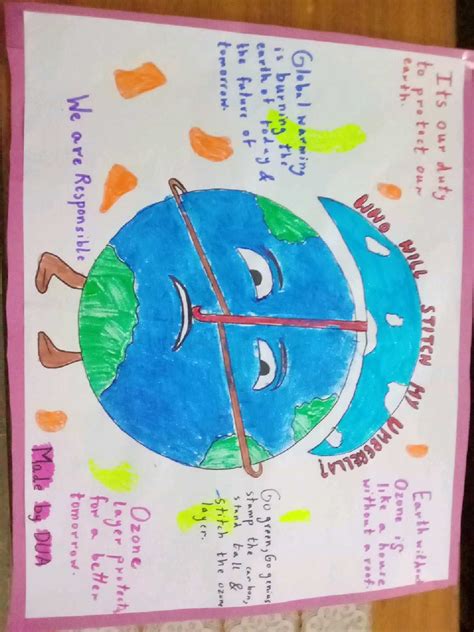 It's our duty
to protect our
earth.
WHO WILL STITCH MY UMBRELLA?
Earth without
Ozone is
like a house
without a roof.
Global warming
is burning the
earth of today &
the future of
tomorrow.
Go green, Go genius
stamp the carbon,
stand tall &
Stitch the ozone
layer.
We are Responsible
Ozone
layer protects
for a better
tomorrow.
Made by DUA